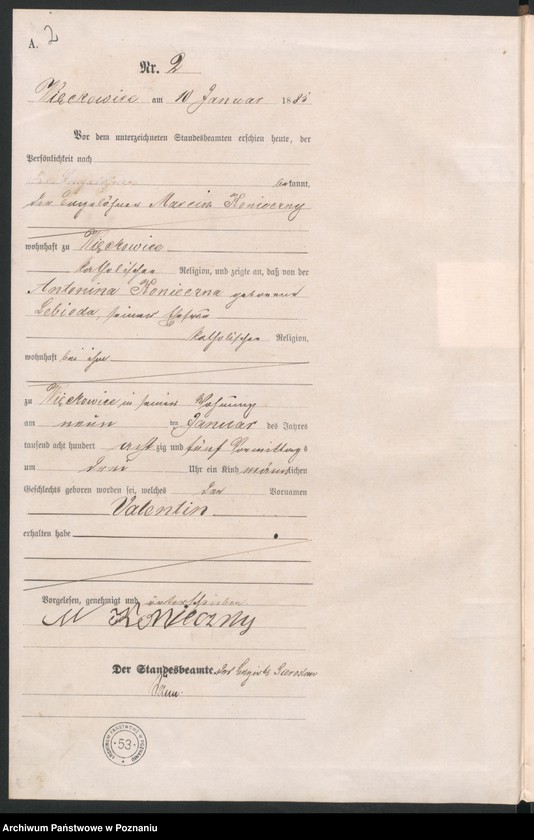 A. 2
Nr. 2
Więckowice am 10 Januar 1885
Vor dem unterzeichneten Standesbeamten erschien heute, der
Persönlichkeit nach
kannt,
der Marcin Konieczny
wohnhaft zu Więckowice
katholischer Religion, und zeigte an, daß von der
Antonina Konieczna geborene
Lebioda, seiner Ehefrau
katholischer Religion,
wohnhaft bei ihm
zu Więckowice in seiner Wohnung
am neun ten Januar des Jahres
tausend acht hundert achtzig und fünf Vormittags
um drei Uhr ein Kind männlichen
Geschlechts geboren worden sei, welches den Vornamen
Valentin
erhalten habe
Vorgelesen, genehmigt und unterschrieben
M Konieczny
Der Standesbeamte.
ARCHIWUM PAŃSTWOWE W POZNANIU
53
Archiwum Państwowe w Poznaniu